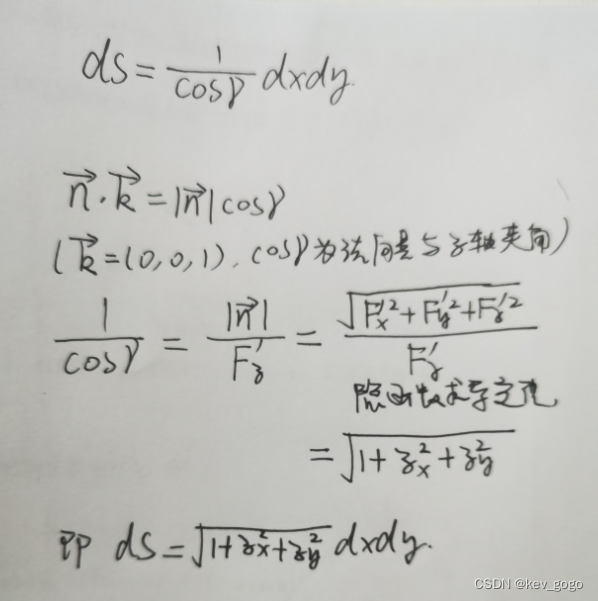 dS = \frac{1}{\cos\gamma} dxdy.
\vec{n}·\vec{k} = |\vec{n}| cosγ
(\vec{k}=(0,0,1). cosγ为法向量与z轴夹角)
\frac{1}{\cos\gamma} = \frac{|\vec{n}|}{F_z'} = \frac{\sqrt{F_x'^2+F_y'^2+F_z'^2}}{F_z'}
隐函数求导定理
= \sqrt{1+z_x^2+z_y^2}
即 dS = \sqrt{1+z_x^2+z_y^2} dxdy.
CSDN @kev_gogo